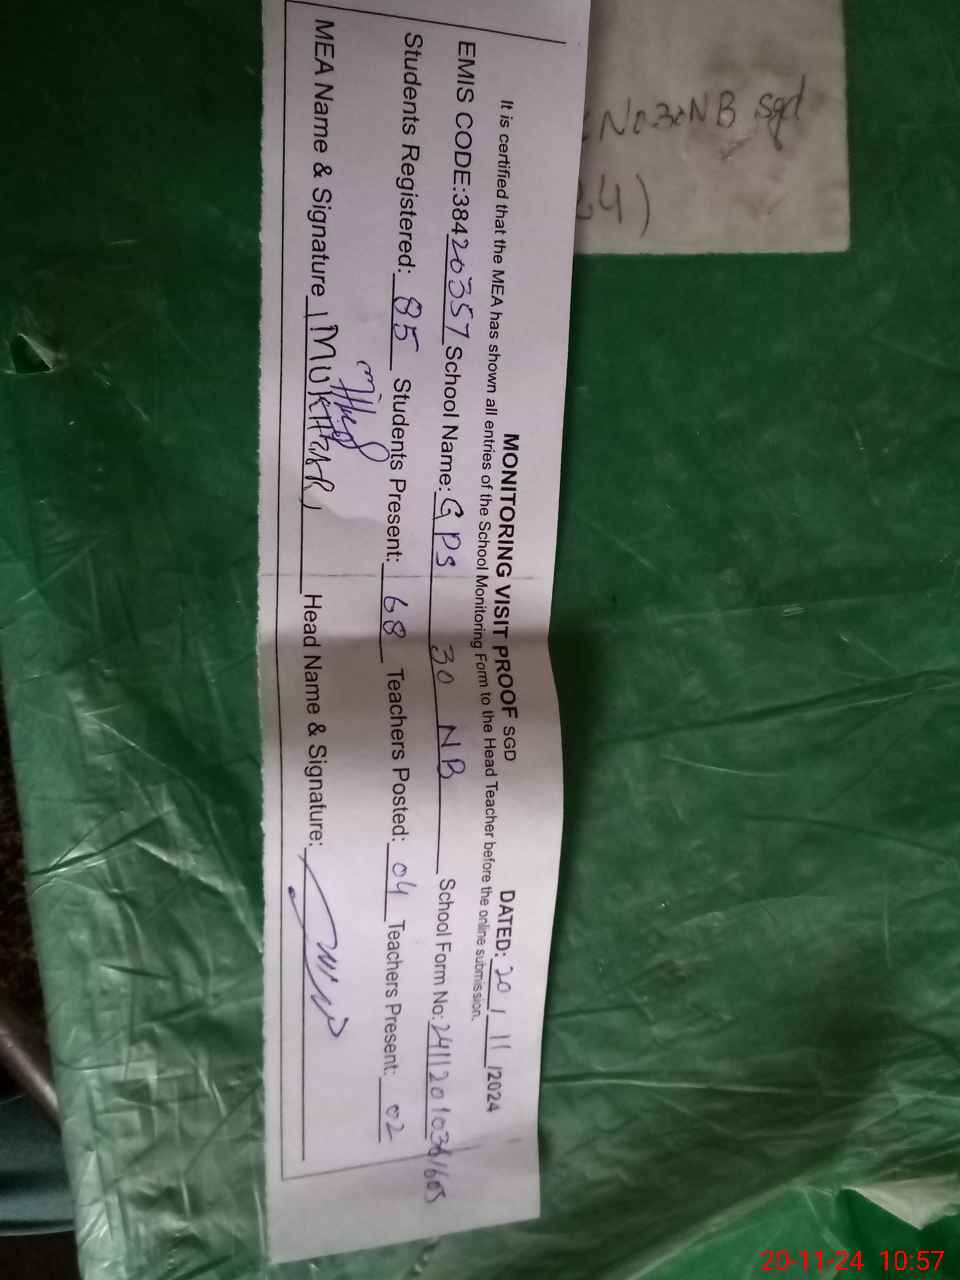 MONITORING VISIT PROOF SGD DATED: 20 / 11 /2024
It is certified that the MEA has shown all entries of the School Monitoring Form to the Head Teacher before the online submission.
EMIS CODE:38420357 School Name: GPS 30 NB School Form No:
Students Registered: 85 Students Present: 68 Teachers Posted: 04 Teachers Present: 02
MEA Name & Signature (MUKHTAR) Head Name & Signature:
No 30 NB sgd
20-11-24 10:57